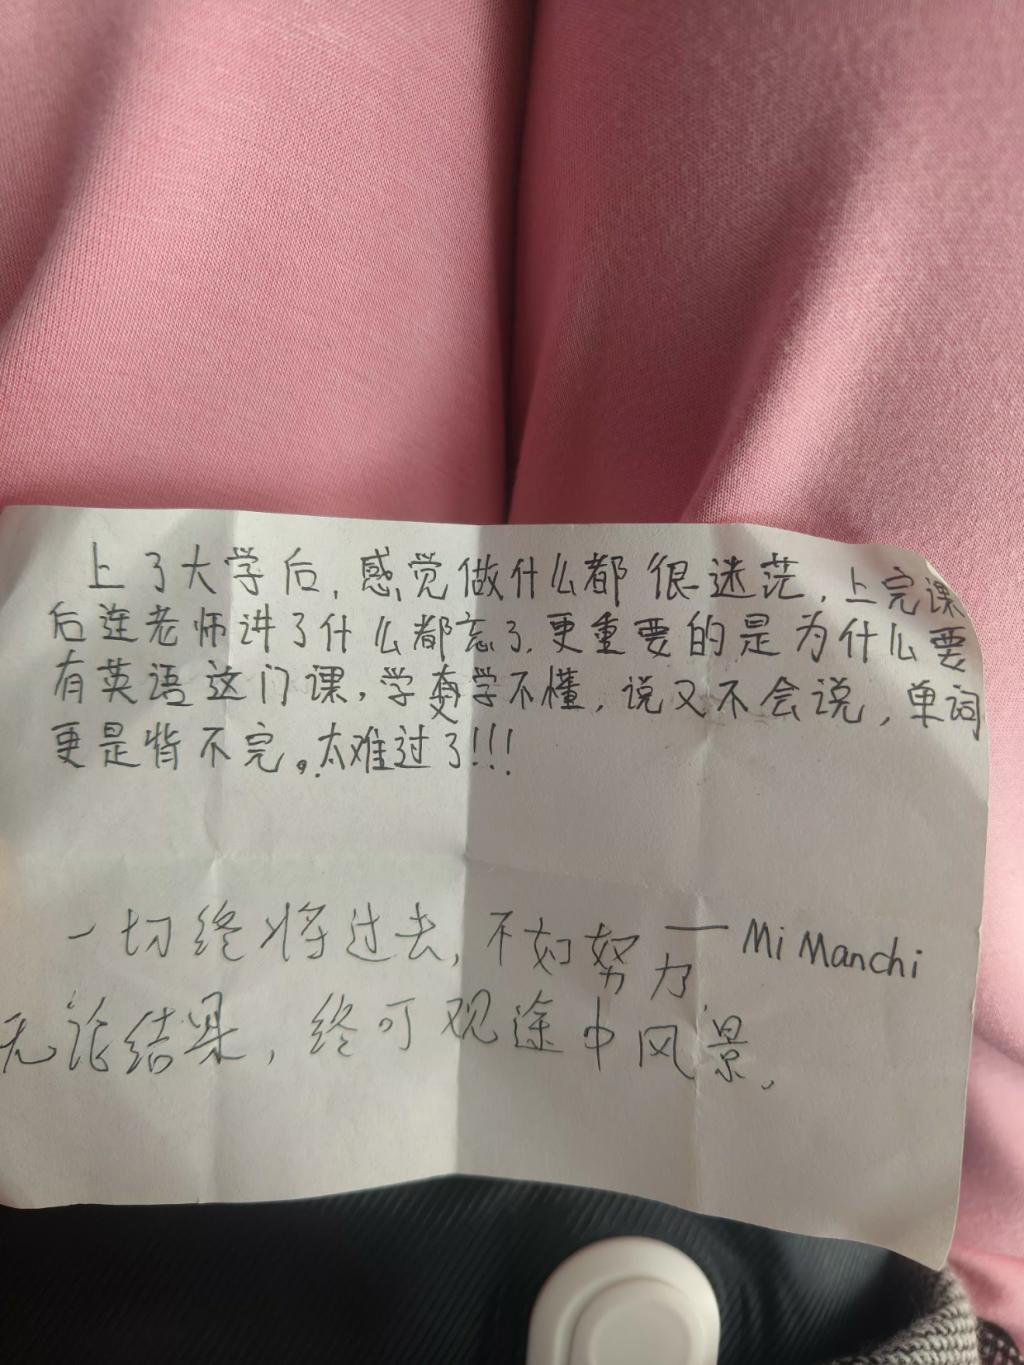 上了大学后,感觉做什么都很迷茫,上完课
后连老师讲了什么都忘了.更重要的是为什么要
有英语这门课,学又学不懂,说又不会说,单词
更是背不完。太难过了!!!
一切终将过去,不如努力 — Mi Manchi
无论结果,终可观途中风景.